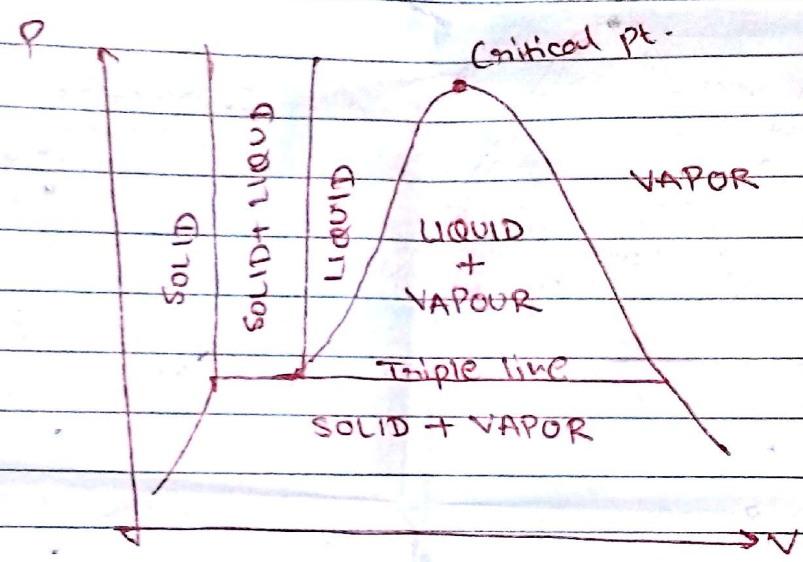 P
Critical Pt.
SOLID
SOLID+ LIQUD
LIQUID
VAPOR
LIQUID
+
VAPOUR
Triple line
SOLID + VAPOR
V